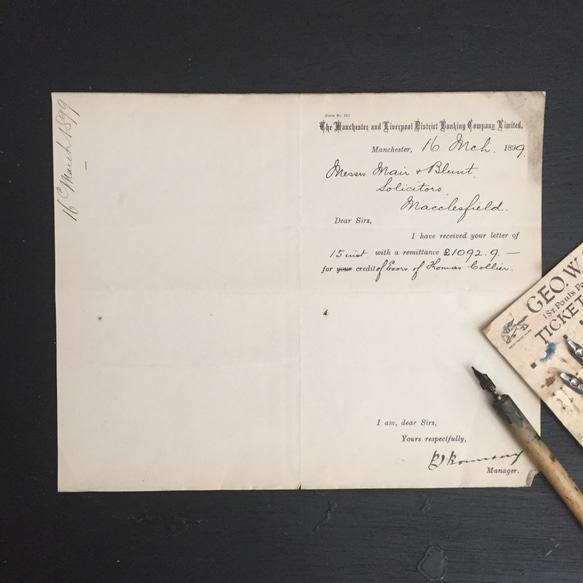 16 March 1899
The Manchester and Liverpool District Banking Company Limited.
Manchester, 16 Mch. 1899.
Messrs Mair & Blunt
Solicitors,
Macclesfield.
Dear Sirs,
I have received your letter of
15 inst. with a remittance £1092.9.—
for your credit of Exors. of Thomas Collier.
I am, dear Sirs,
Yours respectfully,
Manager.
GEO. W
TICKET